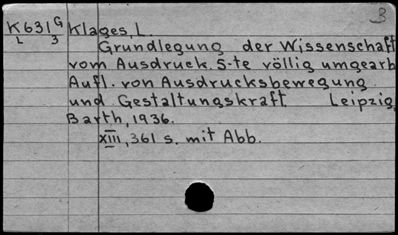 3
K631G Klages, L.
L 3
Grundlegung der Wissenschaft
vom Ausdruck. 5-te völlig umgearb
Aufl. von Ausdrucksbewegung
und Gestaltungskraft Leipzig,
Barth, 1936.
XIII, 361 s. mit Abb.